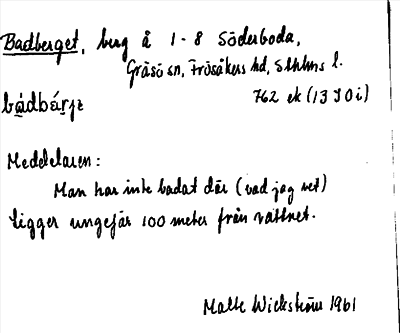 Badberget, berg å 1-8 Söderboda,
Gräsö sn, Frösåkers hd, Sthlms l.
762 ek (13 I 0 i)
Meddelaren:
Man har inte badat där (vad jag vet)
Ligger ungefär 100 meter från vattnet.
Malte Wickström 1961